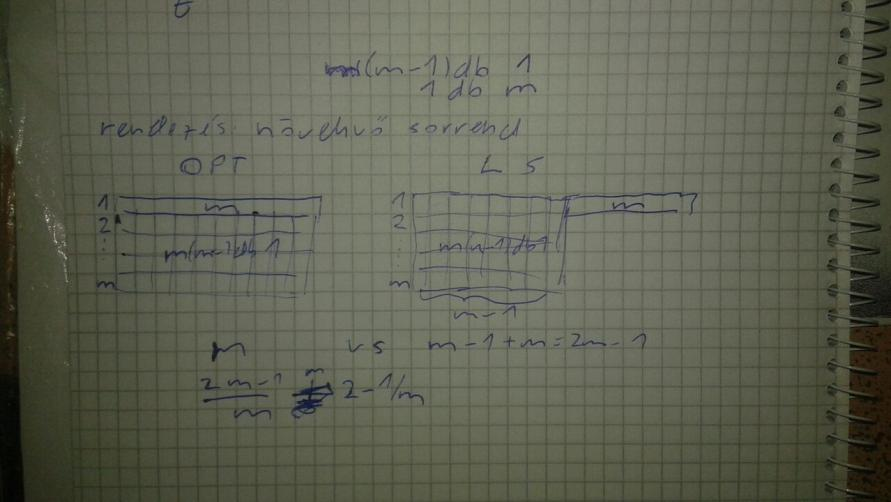 t
(m-1)db 1
1 db m
rendezés növekvő sorrend
OPT LS
1 m 1 m
2 2
⋮ m(m-1)db 1 ⋮ m(m-1)db1
m m
m-1
m vs m-1+m=2m-1
2m-1
m 2-1/m